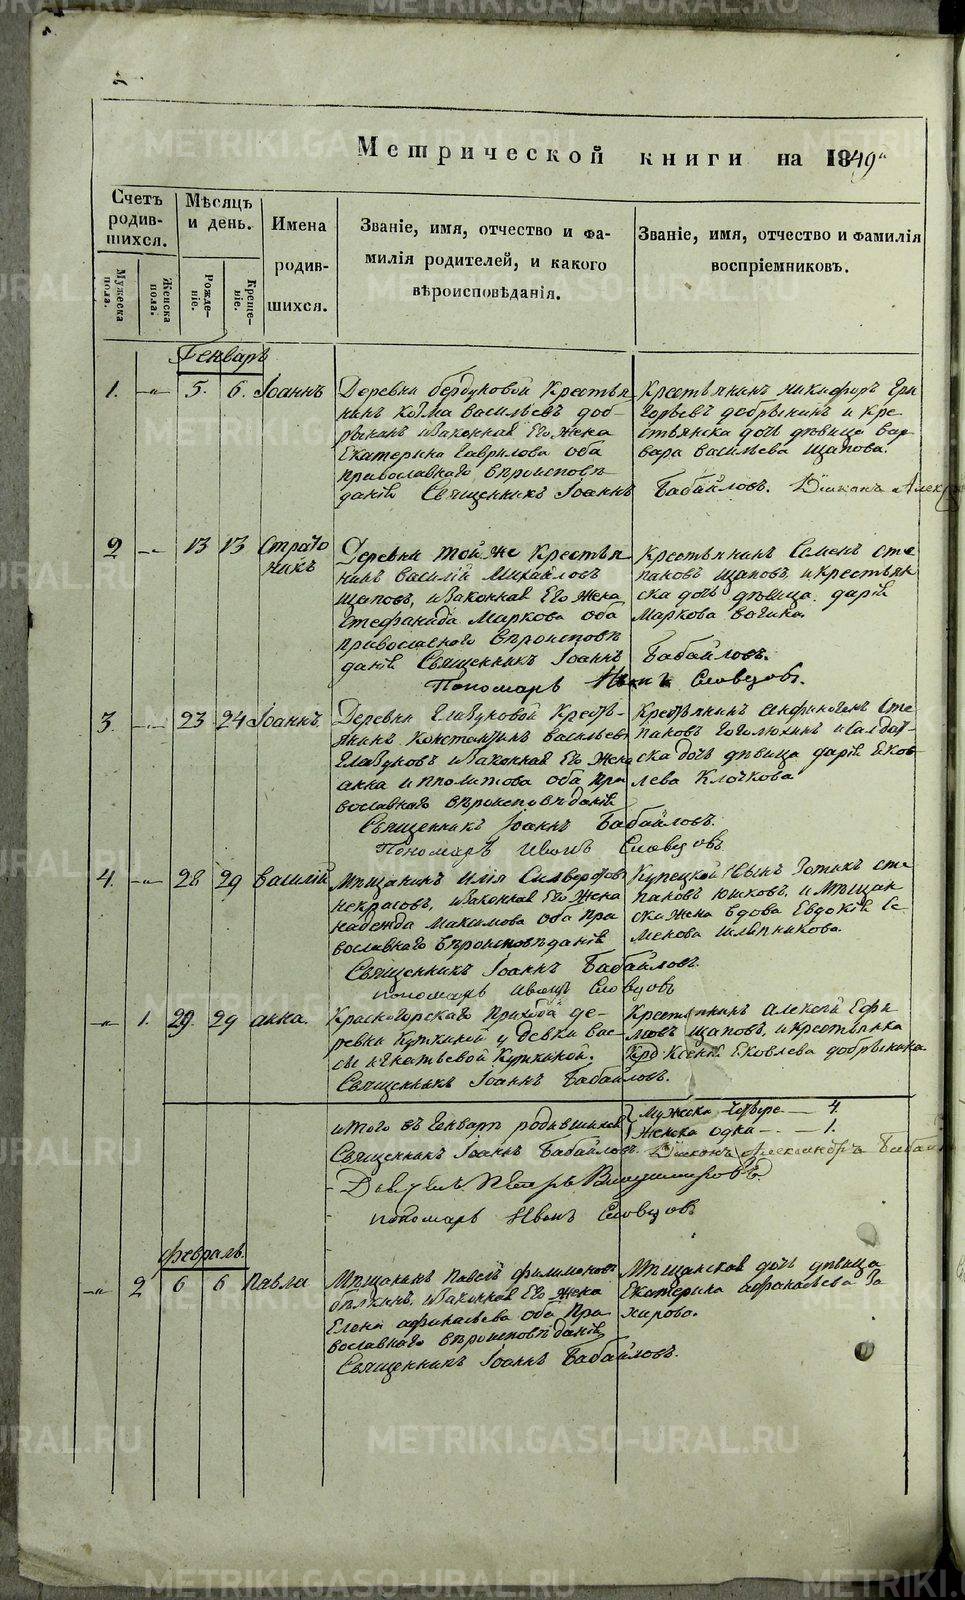 METRIKI.GASO-URAL.RU
Метрической книги на 1849й
Счетъ родив- шихся.
Мѣсяцъ и день.
Имена родив- шихся.
Званіе, имя, отчество и фа- милія родителей, и какого вѣроисповѣданія.
Званіе, имя, отчество и фамилія воспріемниковъ.
Мужеска пола.
Женска пола.
Рожде- ніе.
Креще- ніе.
Генварь
1. -"- 5. 6. Іоаннъ
Деревни бердуковой Крестья
нинъ козма васильевъ доб-
рынинъ изаконная Его жена
Екатерина гаврилова оба
православнаго вѣроисповѣ
данія Священникъ Іоаннъ Бабайловъ. Діаконъ Алекс
Крестьянинъ никифоръ Гри
горьевъ добрынинъ и кре
стьянска дочь дѣвица вар
вара васильева щапова.
2 -"- 13 13 Страто
никъ
Деревни той же Крестья
нинъ василій Михайловъ
щаповъ, изаконная Его жена
стефанида Маркова оба
православнаго вѣроисповѣ
данія Священникъ Іоаннъ Бабайловъ.
Пономарь Иванъ Словцовъ.
Крестьянинъ Семенъ сте
пановъ щаповъ, и крестьян
ска дочь дѣвица дарія
Маркова
3 -"- 23 24 Іоаннъ
Деревни глазуковой Кресть-
янинъ Константинъ васильевъ
глазуковъ изаконная Его жена
анна ипполитова оба пра
вославнаго вѣроисповѣданія
Священникъ Іоаннъ Бабайловъ.
Пономарь Иванъ Словцовъ
Крестьянинъ анфиногенъ сте
пановъ гоголюхинъ исалдат-
ска дочь дѣвица дарія Яков-
лева Клочкова
4. -"- 28 29 василій
Мѣщанинъ Илія
некрасовъ, изаконная Его жена
надежда Максимова оба пра
вославнаго вѣроисповѣданія
Священникъ Іоаннъ Бабайловъ.
пономарь Иванъ Словцовъ
Купецкой сынъ Зотикъ сте
пановъ юшковъ, и Мѣщан
ска жена вдова Евдокія се
менова шляпникова.
-"- 1. 29. 29 анна.
Красногорскаго Прихода де-
ревни Куткиной у девки вас-
сы игнатьевой Куткиной.
Священникъ Іоаннъ Бабайловъ.
Крестьянинъ Алексій Ефи
мовъ щаповъ, и крестьянка
Ксенія Яковлева добрынина
итого въ Генварѣ родившихся
Мужска четверо — 4.
Женска одна — 1.
Священникъ Іоаннъ Бабайловъ. Діаконъ Александръ Бабай
Петръ
пономарь Иванъ Словцовъ
Февраль.
-"- 2 6 6 Павла
Мѣщанинъ Павелъ филимоновъ
бѣлкинъ, изаконная Его жена
Елена афанасьева оба Пра
вославнаго вѣроисповѣданія
Священникъ Іоаннъ Бабайловъ.
Мѣщанская дочь дѣвица
Екатерина афанасьева за
харова.